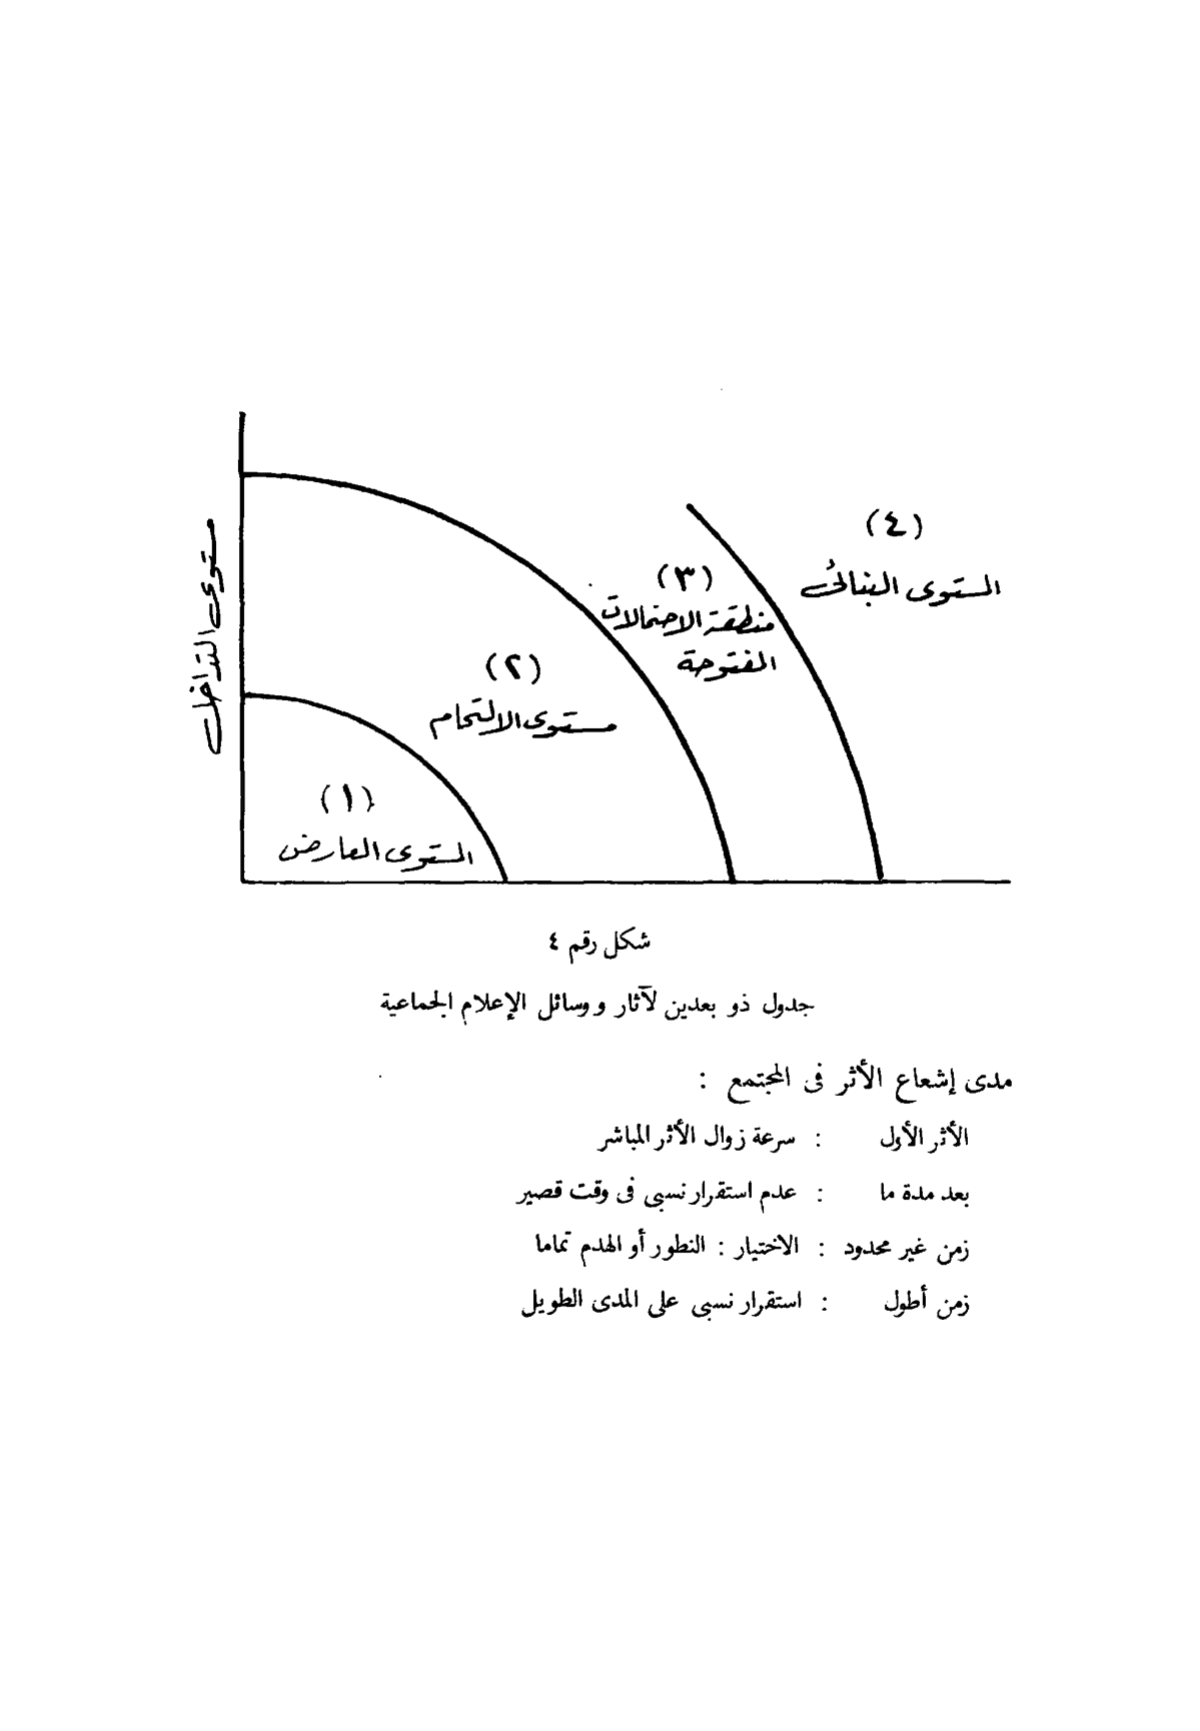 (٤)
المستوى البنائى
(٣)
منطقة الاحتمالات
المفتوحة
(٢)
مستوى الالتحام
(١)
المستوى العارض
مستوى التداخل
شكل رقم ٤
جدول ذو بعدين لآثار و وسائل الإعلام الجماعية
مدى إشعاع الأثر فى المجتمع :
الأثر الأول : سرعة زوال الأثر المباشر
بعد مدة ما : عدم استقرار نسبى فى وقت قصير
زمن غير محدود : الاختيار : النطور أو الهدم تماما
زمن أطول : استقرار نسبى على المدى الطويل